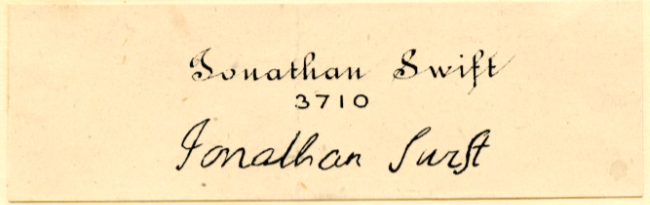 Jonathan Swift
3710
Jonathan Swift